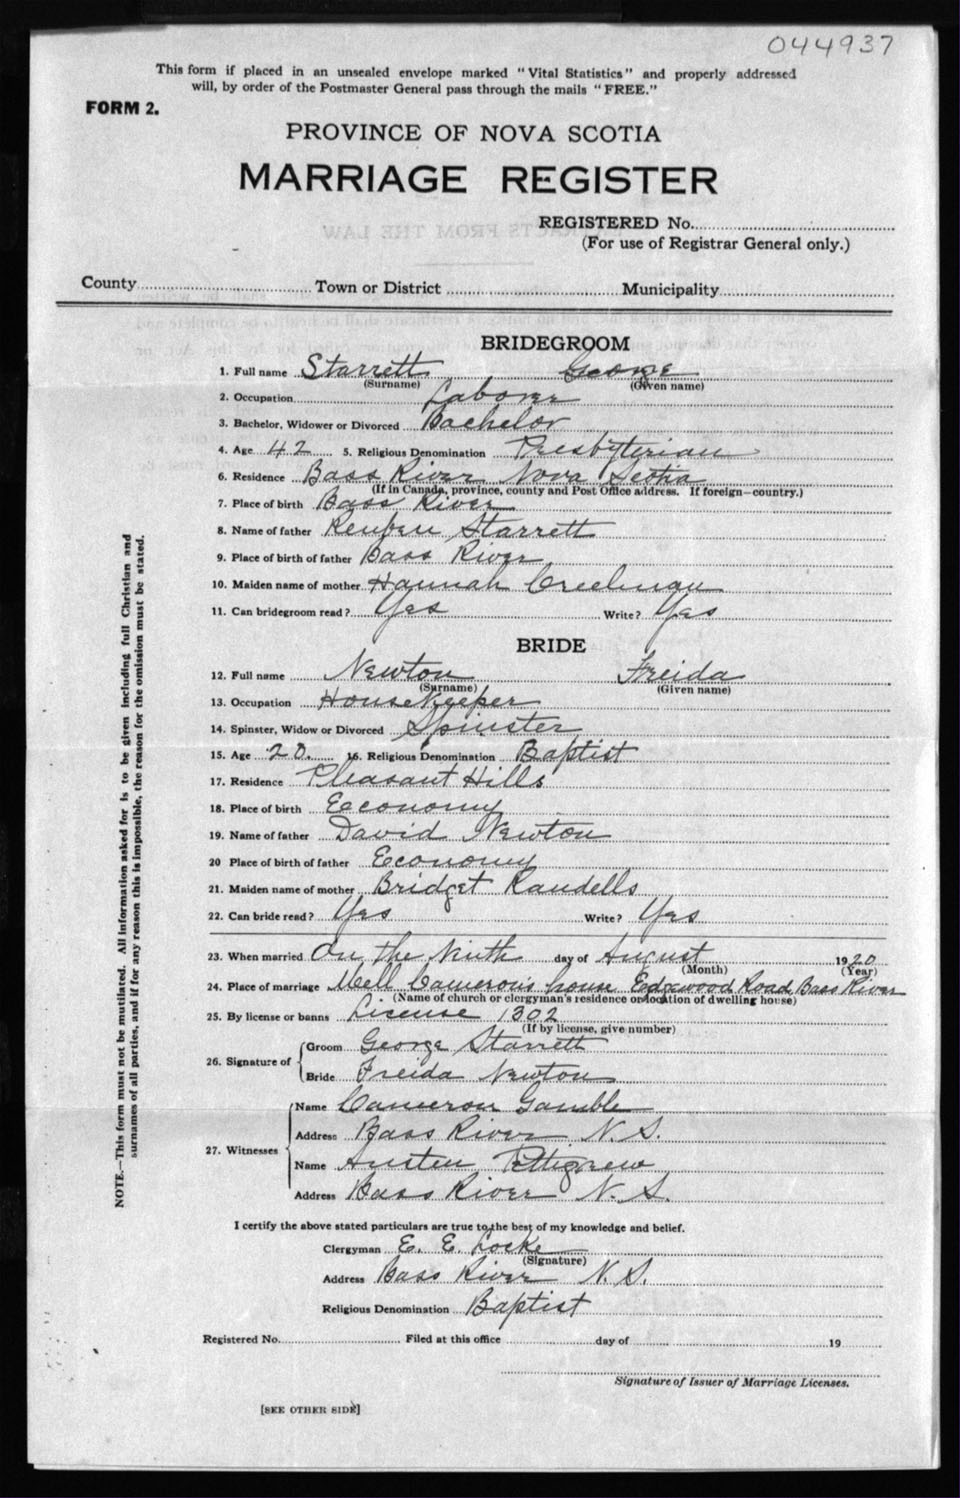 044937
This form if placed in an unsealed envelope marked "Vital Statistics" and properly addressed
will, by order of the Postmaster General pass through the mails "FREE."
FORM 2.
PROVINCE OF NOVA SCOTIA
MARRIAGE REGISTER
REGISTERED No.
(For use of Registrar General only.)
County Town or District Municipality
BRIDEGROOM
1. Full name Starrett George
(Surname) (Given name)
2. Occupation Laborer
3. Bachelor, Widower or Divorced Bachelor
4. Age 42 5. Religious Denomination Presbyterian
6. Residence Bass River Nova Scotia
(If in Canada, province, county and Post Office address. If foreign—country.)
7. Place of birth Bass River
8. Name of father Reuben Starrett
9. Place of birth of father Bass River
10. Maiden name of mother Hannah Creelman
11. Can bridegroom read? Yes Write? Yes
BRIDE
12. Full name Newton Freida
(Surname) (Given name)
13. Occupation Housekeeper
14. Spinster, Widow or Divorced Spinster
15. Age 20 16. Religious Denomination Baptist
17. Residence Pleasant Hills
18. Place of birth Economy
19. Name of father David Newton
20 Place of birth of father Economy
21. Maiden name of mother Bridget Randells
22. Can bride read? Yes Write? Yes
23. When married On the Ninth day of August 1920
(Month) (Year)
24. Place of marriage Mell Cameron's house Edgewood Road Bass River
(Name of church or clergyman's residence or location of dwelling house)
25. By license or banns License 1302
(If by license, give number)
26. Signature of Groom George Starrett
Bride Freida Newton
27. Witnesses Name Cameron Gamble
Address Bass River N.S.
Name Austen Pettigrew
Address Bass River N.S.
I certify the above stated particulars are true to the best of my knowledge and belief.
Clergyman E. E. Locke
(Signature)
Address Bass River N.S.
Religious Denomination Baptist
Registered No. Filed at this office day of 19
Signature of Issuer of Marriage Licenses.
[SEE OTHER SIDE]
NOTE.—This form must not be mutilated. All information asked for is to be given including full Christian and
surnames of all parties, and if for any reason this is impossible, the reason for the omission must be stated.